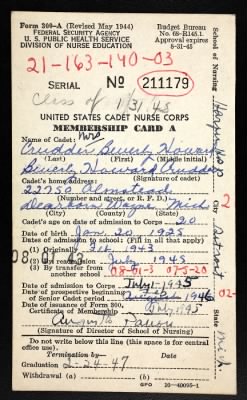 Form 300-A (Revised May 1944)
FEDERAL SECURITY AGENCY
U. S. PUBLIC HEALTH SERVICE
DIVISION OF NURSE EDUCATION
Budget Bureau
No. 68-R145.1
Approval expires
8-31-45
21-163-140-03
SERIAL No 211179
Class of 1/31/45
UNITED STATES CADET NURSE CORPS
MEMBERSHIP CARD A
Name of Cadet: Mrs
Crudder Beverly Howard
(Last) (First) (Middle initial)
Beverly Howard Crudder
Cadet's home address: (Signature of cadet)
22750 Olmstead
(Number and street, or R. F. D.)
Dearborn Wayne Mich
(City) (County) (State)
Cadet's age on date of admission to Corps 20
Date of birth Jan. 20 1925
Dates of admission to school: (Fill in all that apply)
(1) Original 1943
(2) By readmission July 1945
(3) By transfer from another school
08 07 43
08-01-3 07-5-20
Date of admission to Corps July 1945
Date of prospective beginning of Senior Cadet period 1946
Date of issuance of Form 300, Certificate of Membership July 1945
(Signature of Director of School of Nursing)
Do not write below this line (this space is for central office use).
Termination by Date
Graduation 2-24-47
Withdrawal (a) (b)
GPO 16-40095-1
School of Nursing
City Detroit
State Mich
2
02-